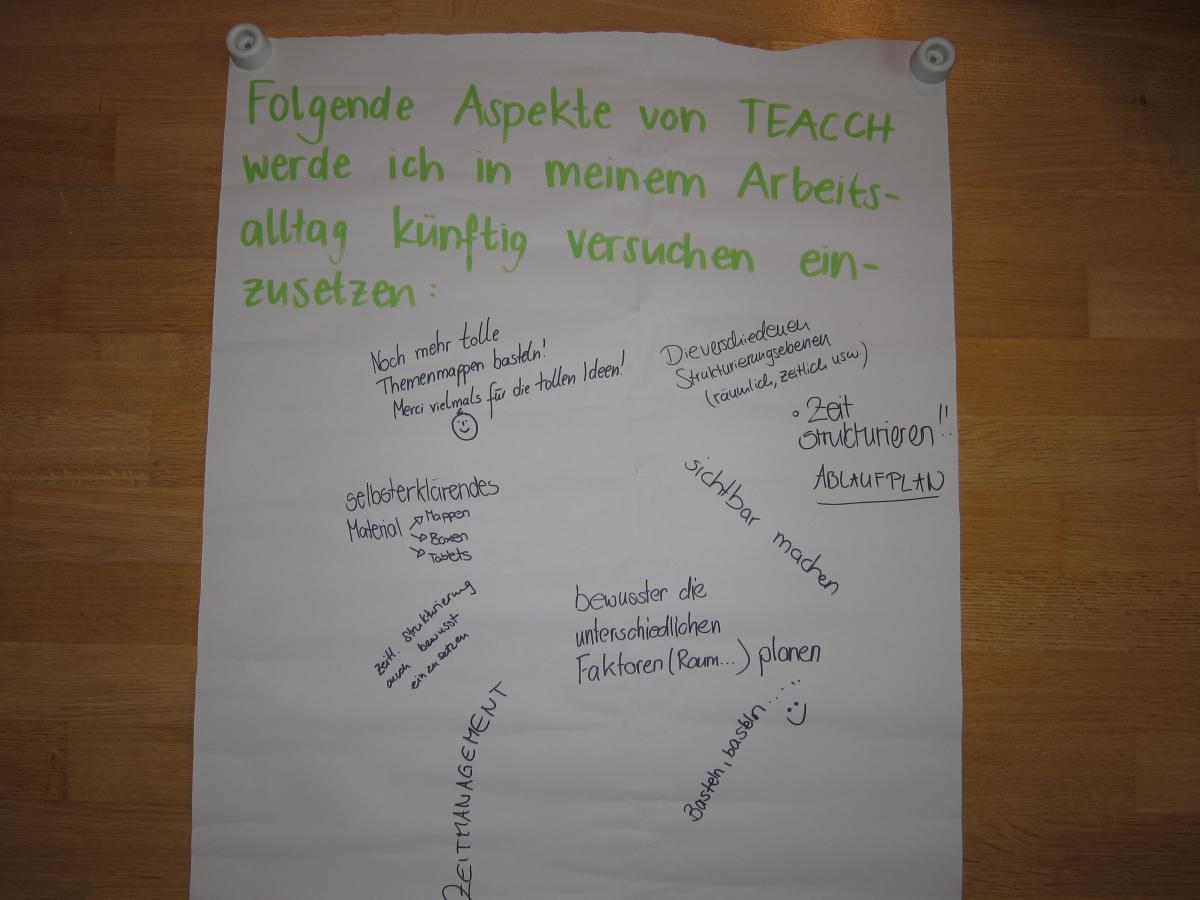 Folgende Aspekte von TEACCH
werde ich in meinem Arbeits-
alltag künftig versuchen ein-
zusetzen:
Noch mehr tolle
Themenmappen basteln!
Merci vielmals für die tollen Ideen!
Die verschiedenen
Strukturierungsebenen
(räumlich, zeitlich usw.)
• Zeit
strukturieren!!
ABLAUFPLAN
sichtbar machen
selbsterklärendes
Material
Mappen
Boxen
Tablets
zeitl. Strukturierung
auch bewusst
einzusetzen
bewusster die
unterschiedlichen
Faktoren (Raum...) planen
ZEITMANAGEMENT
Basteln, basteln.....